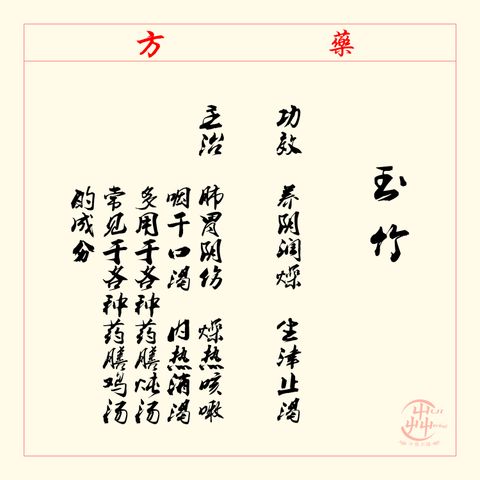 藥方
玉竹
功效 养阴润燥 生津止渴
主治 肺胃阴伤 燥热咳嗽
咽干口渴 内热消渴
多用于各种药膳炖汤
常见于各种药膳鸡汤
的成分